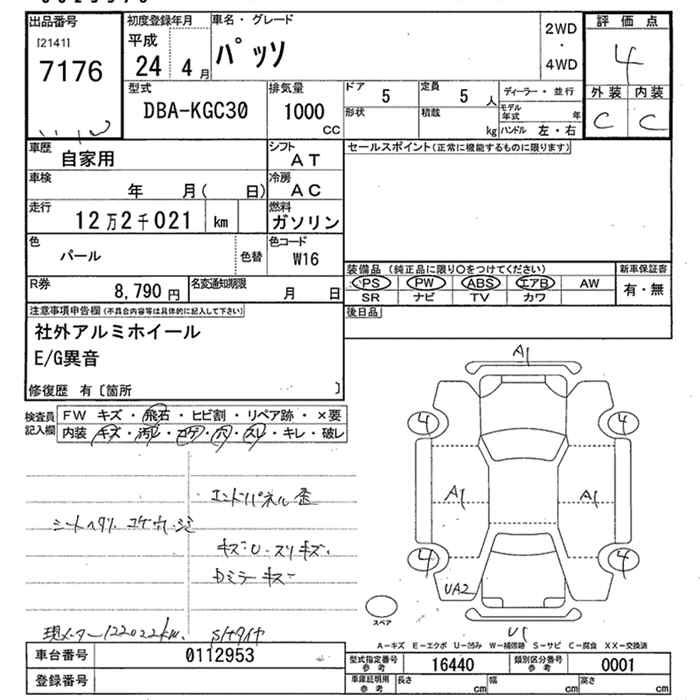 出品番号 初度登録年月 車名・グレード 2WD ・ 4WD 評価点
[2141] 7176 平成 24 4月 パッソ 4
外装 内装
C C
型式 DBA-KGC30 排気量 1000 CC
ドア 5 定員 5人 ディーラー・並行
形状 積載 kg モデル年式 年 ハンドル 左・右
車歴 自家用 シフト AT セールスポイント(正常に機能するものに限ります)
車検 年 月( 日) 冷房 AC
走行 12万2千021 km 燃料 ガソリン
色 パール 色替 色コード W16
装備品 (純正品に限り○をつけてください) 新車保証書
PS PW ABS エアB AW 有・無
SR ナビ TV カワ
R券 8,790円 名変通知期限 月 日
後日品
注意事項申告欄(不具合内容等は具体的に記入して下さい)
社外アルミホイール
E/G異音
修復歴 有〔箇所 〕
検査員記入欄 FW キズ・飛石・ヒビ割・リペア跡・×要
内装 キズ・汚レ・コゲ・穴・スレ・キレ・破レ
A1
4 4
A1 A1
4 4
UA2
U1
スペア
エンドパネル歪
シートヘタリ
キズ・U・スリキズ、
Dミラーキズ
現メーター122022km、
A-キズ E-エクボ U-凹み W-補修跡 S-サビ C-腐食 XX-交換済
車台番号 0112953
型式指定番号 参考 16440 類別区分番号 参考 0001
登録番号
車庫証明用 参考 長さ cm 幅 cm 高さ cm